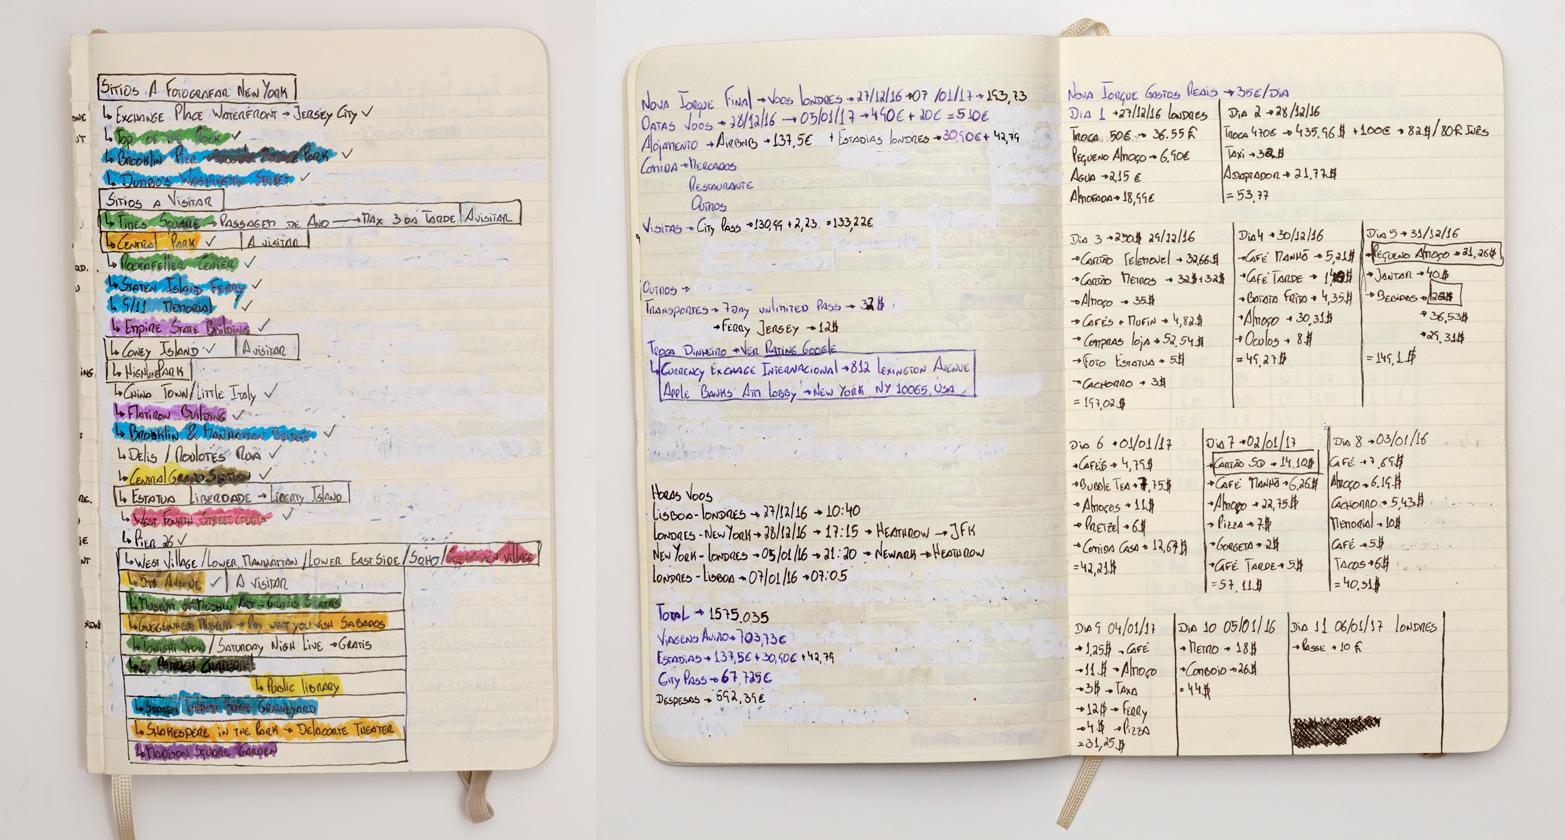 Sítios A Fotografar New York
↳ Exchange Place Waterfront → Jersey City ✓
↳ Top of the Rock ✓
↳ Brooklin Pier Park ✓
↳ Dumbo's Washington Street ✓
Sitios a Visitar
↳ Times Square → Passagem de Ano → Max 3 da Tarde | A visitar
↳ Central Park ✓ | A visitar
↳ Rockafeller Center ✓
↳ Staten Island Ferry ✓
↳ 9/11 Memorial ✓
↳ Empire State Building ✓
↳ Coney Island ✓ | A visitar
↳ Highline Park
↳ China Town/Little Italy ✓
↳ Flatiron Building ✓
↳ Brooklin & Manhattan Bridge ✓
↳ Delis / Roulotes Rua ✓
↳ Central Grand Station ✓
↳ Estatua Liberdade → Liberty Island
↳ West Fourth Street Courts ✓
↳ Pier 26 ✓
↳ West Village/Lower Manhattan/Lower East Side/Soho/Greenwich Village
↳ 5th Avenue ✓ | A visitar
↳ Museum of Modern Art → Gratis Sextas
↳ Guggenheim Museum → Pay what you wish Sabados
↳ Tonight Show / Saturday Nigh Live → Gratis
↳ St. Patrick Cathedral
↳ Public Library
↳ Staten Island Graveyard
↳ Shakespere in the Park → Delacorte Theater
↳ Madison Square Garden
Nova Iorque Final → Voos Londres → 27/12/16 → 07/01/17 → 193,73
Datas Voos → 28/12/16 → 05/01/17 → 490€ + 20€ = 510€
Alojamento → Airbnb → 137,5€ + Estadias Londres → 30,90€ + 42,79
Comida → Mercados
Restaurante
Outros
Visitas → City Pass → 130,99 + 2,23 = 133,22€
Outros →
Transportes → 7 day unlimited Pass → 32$
→ Ferry Jersey → 12$
Troca Dinheiro → Ver Rating Google
↳ Currency Exchage Internacional → 812 Lexington Avenue
Apple Banks Atm Lobby → New York NY 10065, USA
Horas Voos
Lisboa-Londres → 27/12/16 → 10:40
Londres-New York → 28/12/16 → 17:15 → Heathrow → JFK
New York-Londres → 05/01/16 → 21:20 → Newark → Heathrow
Londres-Lisboa → 07/01/16 → 07:05
Total → 1575,035
Viagens Avião → 703,73€
Estadias → 137,5€ + 30,90€ + 42,79
City Pass → 67,725€
Despesas → 592,39€
Nova Iorque Gastos Reais → 35€/dia
Dia 1 → 27/12/16 Londres
Troca 50€ → 36.55 £
Pequeno Almoço → 6,90€
Agua → 2,15 €
Almofada → 18,99€
Dia 2 → 28/12/16
Troca 470€ → 435,96$ + 100€ → 82$/80£ Inês
Taxi → 32$
Adaptador → 21,77$
= 53,77
Dia 3 → 250$ 29/12/16
→ Cartão Telemovel → 32,66$
→ Cartão Metros → 32$+32$
→ Almoço → 35$
→ Cafés + Mufin → 4,82$
→ Compras loja → 52,54$
→ Foto Estatua → 5$
→ Cachorro → 3$
= 197,02$
Dia 4 → 30/12/16
→ Café Manhã → 5,21$
→ Café Tarde →
→ Batata Frita → 4,35$
→ Almoço → 30,31$
→ Oculos → 8$
= 49,27$
Dia 5 → 31/12/16
→ Pequeno Almoço → 21,26$
→ Jantar → 40$
→ Bebidas →
→ 36,53$
→ 29,31$
= 149,1$
Dia 6 → 01/01/17
→ Cafés → 4,79$
→ Bubble Tea → 7,75$
→ Almoços → 11$
→ Pretzel → 6$
→ Comida Casa → 12,67$
= 42,21$
Dia 7 → 02/01/17
→ Cartão SD → 14,10$
→ Café Manhã → 6,26$
→ Almoço → 22,75$
→ Pizza → 7$
→ Gorgeta → 2$
→ Café Tarde → 5$
= 57,11$
Dia 8 → 03/01/16
Café → 7,69$
Almoço → 6,19$
Cachorro → 5,43$
Memorial → 10$
Café → 5$
Tacos → 6$
= 40,31$
Dia 9 04/01/17
→ 1,25$ → Café
→ 11$ → Almoço
→ 3$ → Taxa
→ 12$ → Ferry
→ 4$ → Pizza
= 31,25$
Dia 10 05/01/16
→ Metro → 18$
→ Comboio → 26$
= 44$
Dia 11 06/01/17 Londres
→ Passe → 10 £